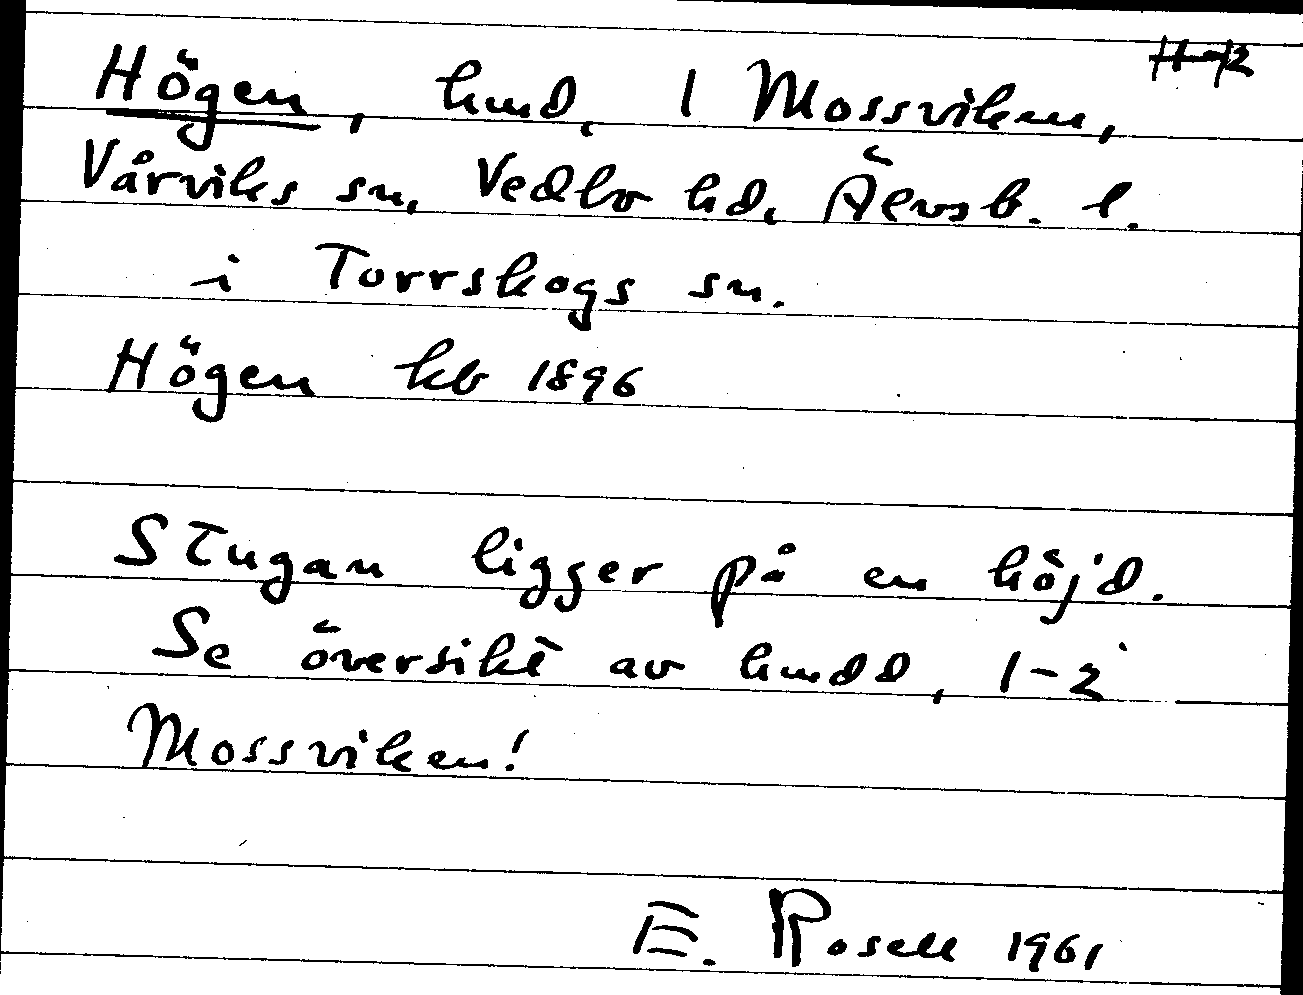 Högen, hmd, 1 Mossviken,
Vårviks sn, Vedbo hd, Älvsb. l.
i Torrskogs sn.
Högen kb 1896
Stugan ligger på en höjd.
Se översikt av hmdd, 1-2
Mossviken!
E. Rosell 1961